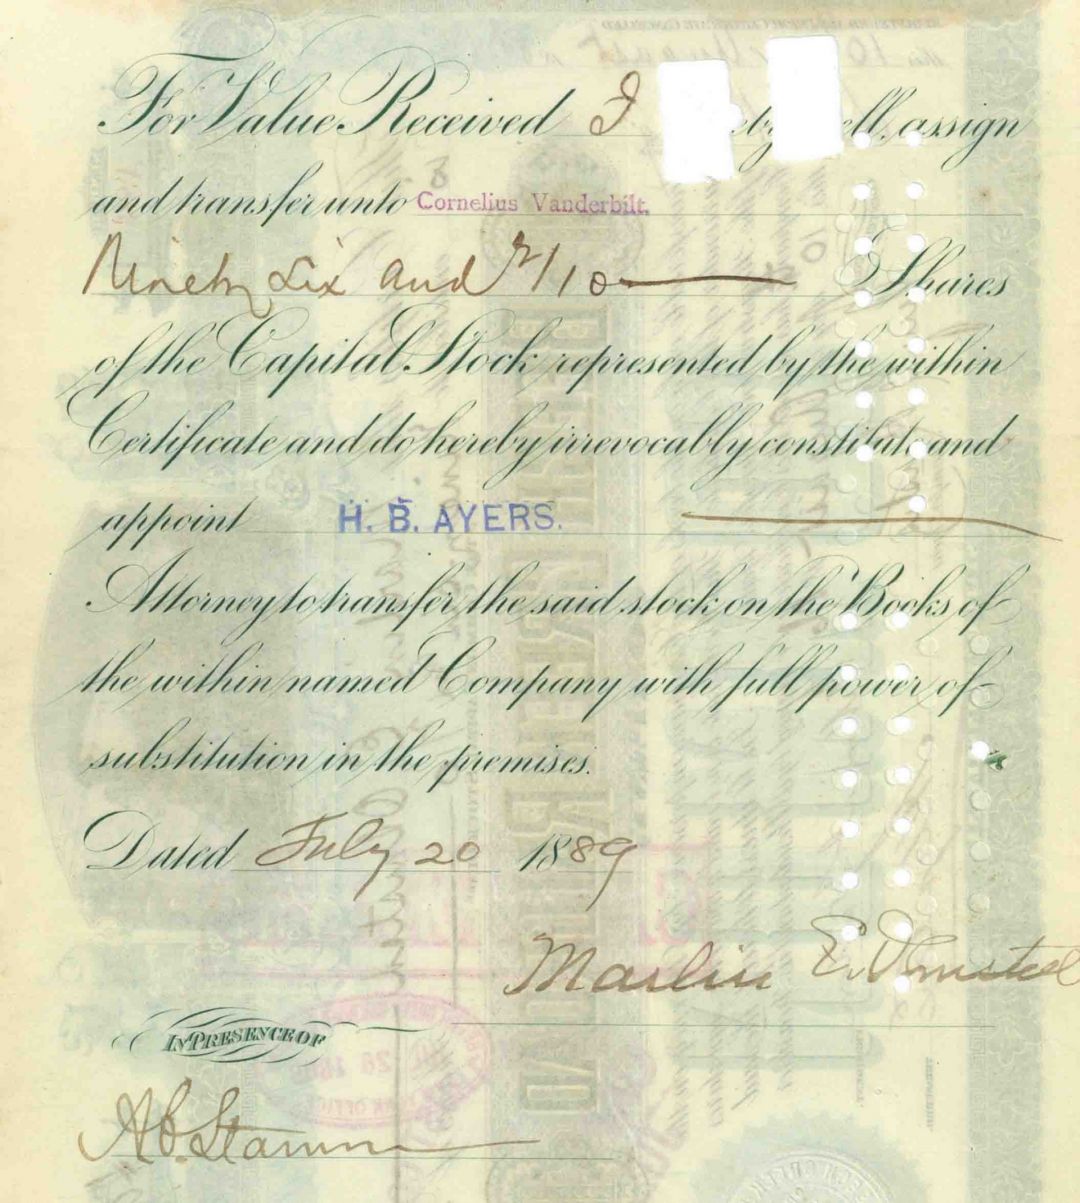 For Value Received I eby ell, assign
and transfer unto Cornelius Vanderbilt.
Ninety Six and 2/10 Shares
of the Capital Stock represented by the within
Certificate and do hereby irrevocably constitute and
appoint H. B. AYERS.
Attorney to transfer the said stock on the Books of
the within named Company with full power of
substitution in the premises.
Dated July 20 1889
Marlin E. Olmsted
IN PRESENCE OF
A.C. Stamm